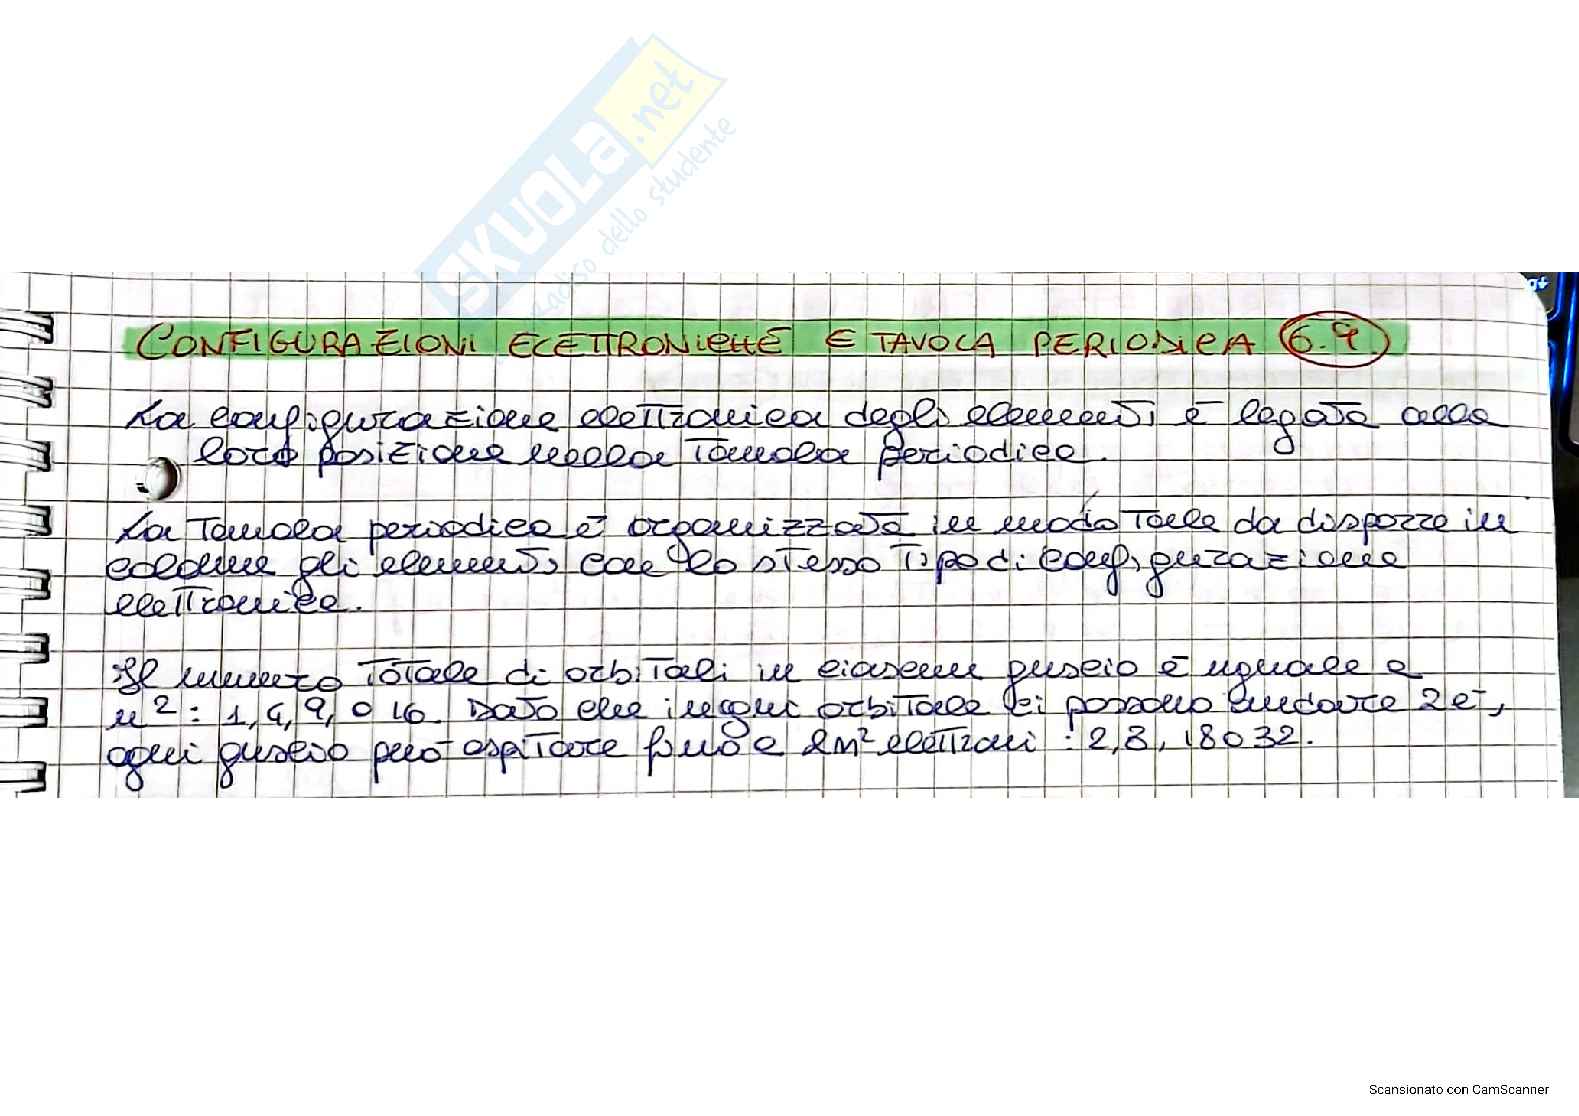 SKUOLA.net
paradiso dello studente
g+
CONFIGURAZIONI ELETTRONICHE E TAVOLA PERIODICA 6.9
La configurazione elettronica degli elementi è legata alla
loro posizione nella Tavola periodica.
La Tavola periodica è organizzata in modo Tale da disporre in
colonne gli elementi con lo stesso Tipo di configurazione
elettronica.
Il numero Totale di orbitali in ciascun guscio è uguale a
n²: 1, 4, 9, o 16. Dato che in ogni orbitale ci possono andare 2e⁻,
ogni guscio può ospitare fino a 2n² elettroni : 2, 8, 18 o 32.
Scansionato con CamScanner